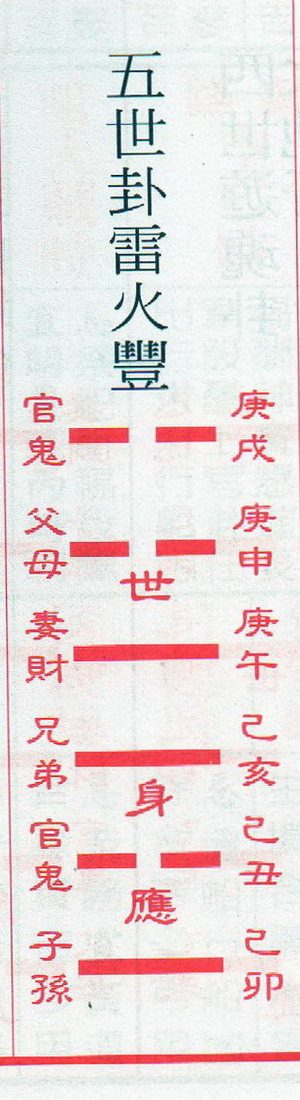 五世卦雷火豐
庚戌
官鬼
庚申
父母
世
庚午
妻財
己亥
兄弟
身
己丑
官鬼
應
己卯
子孫